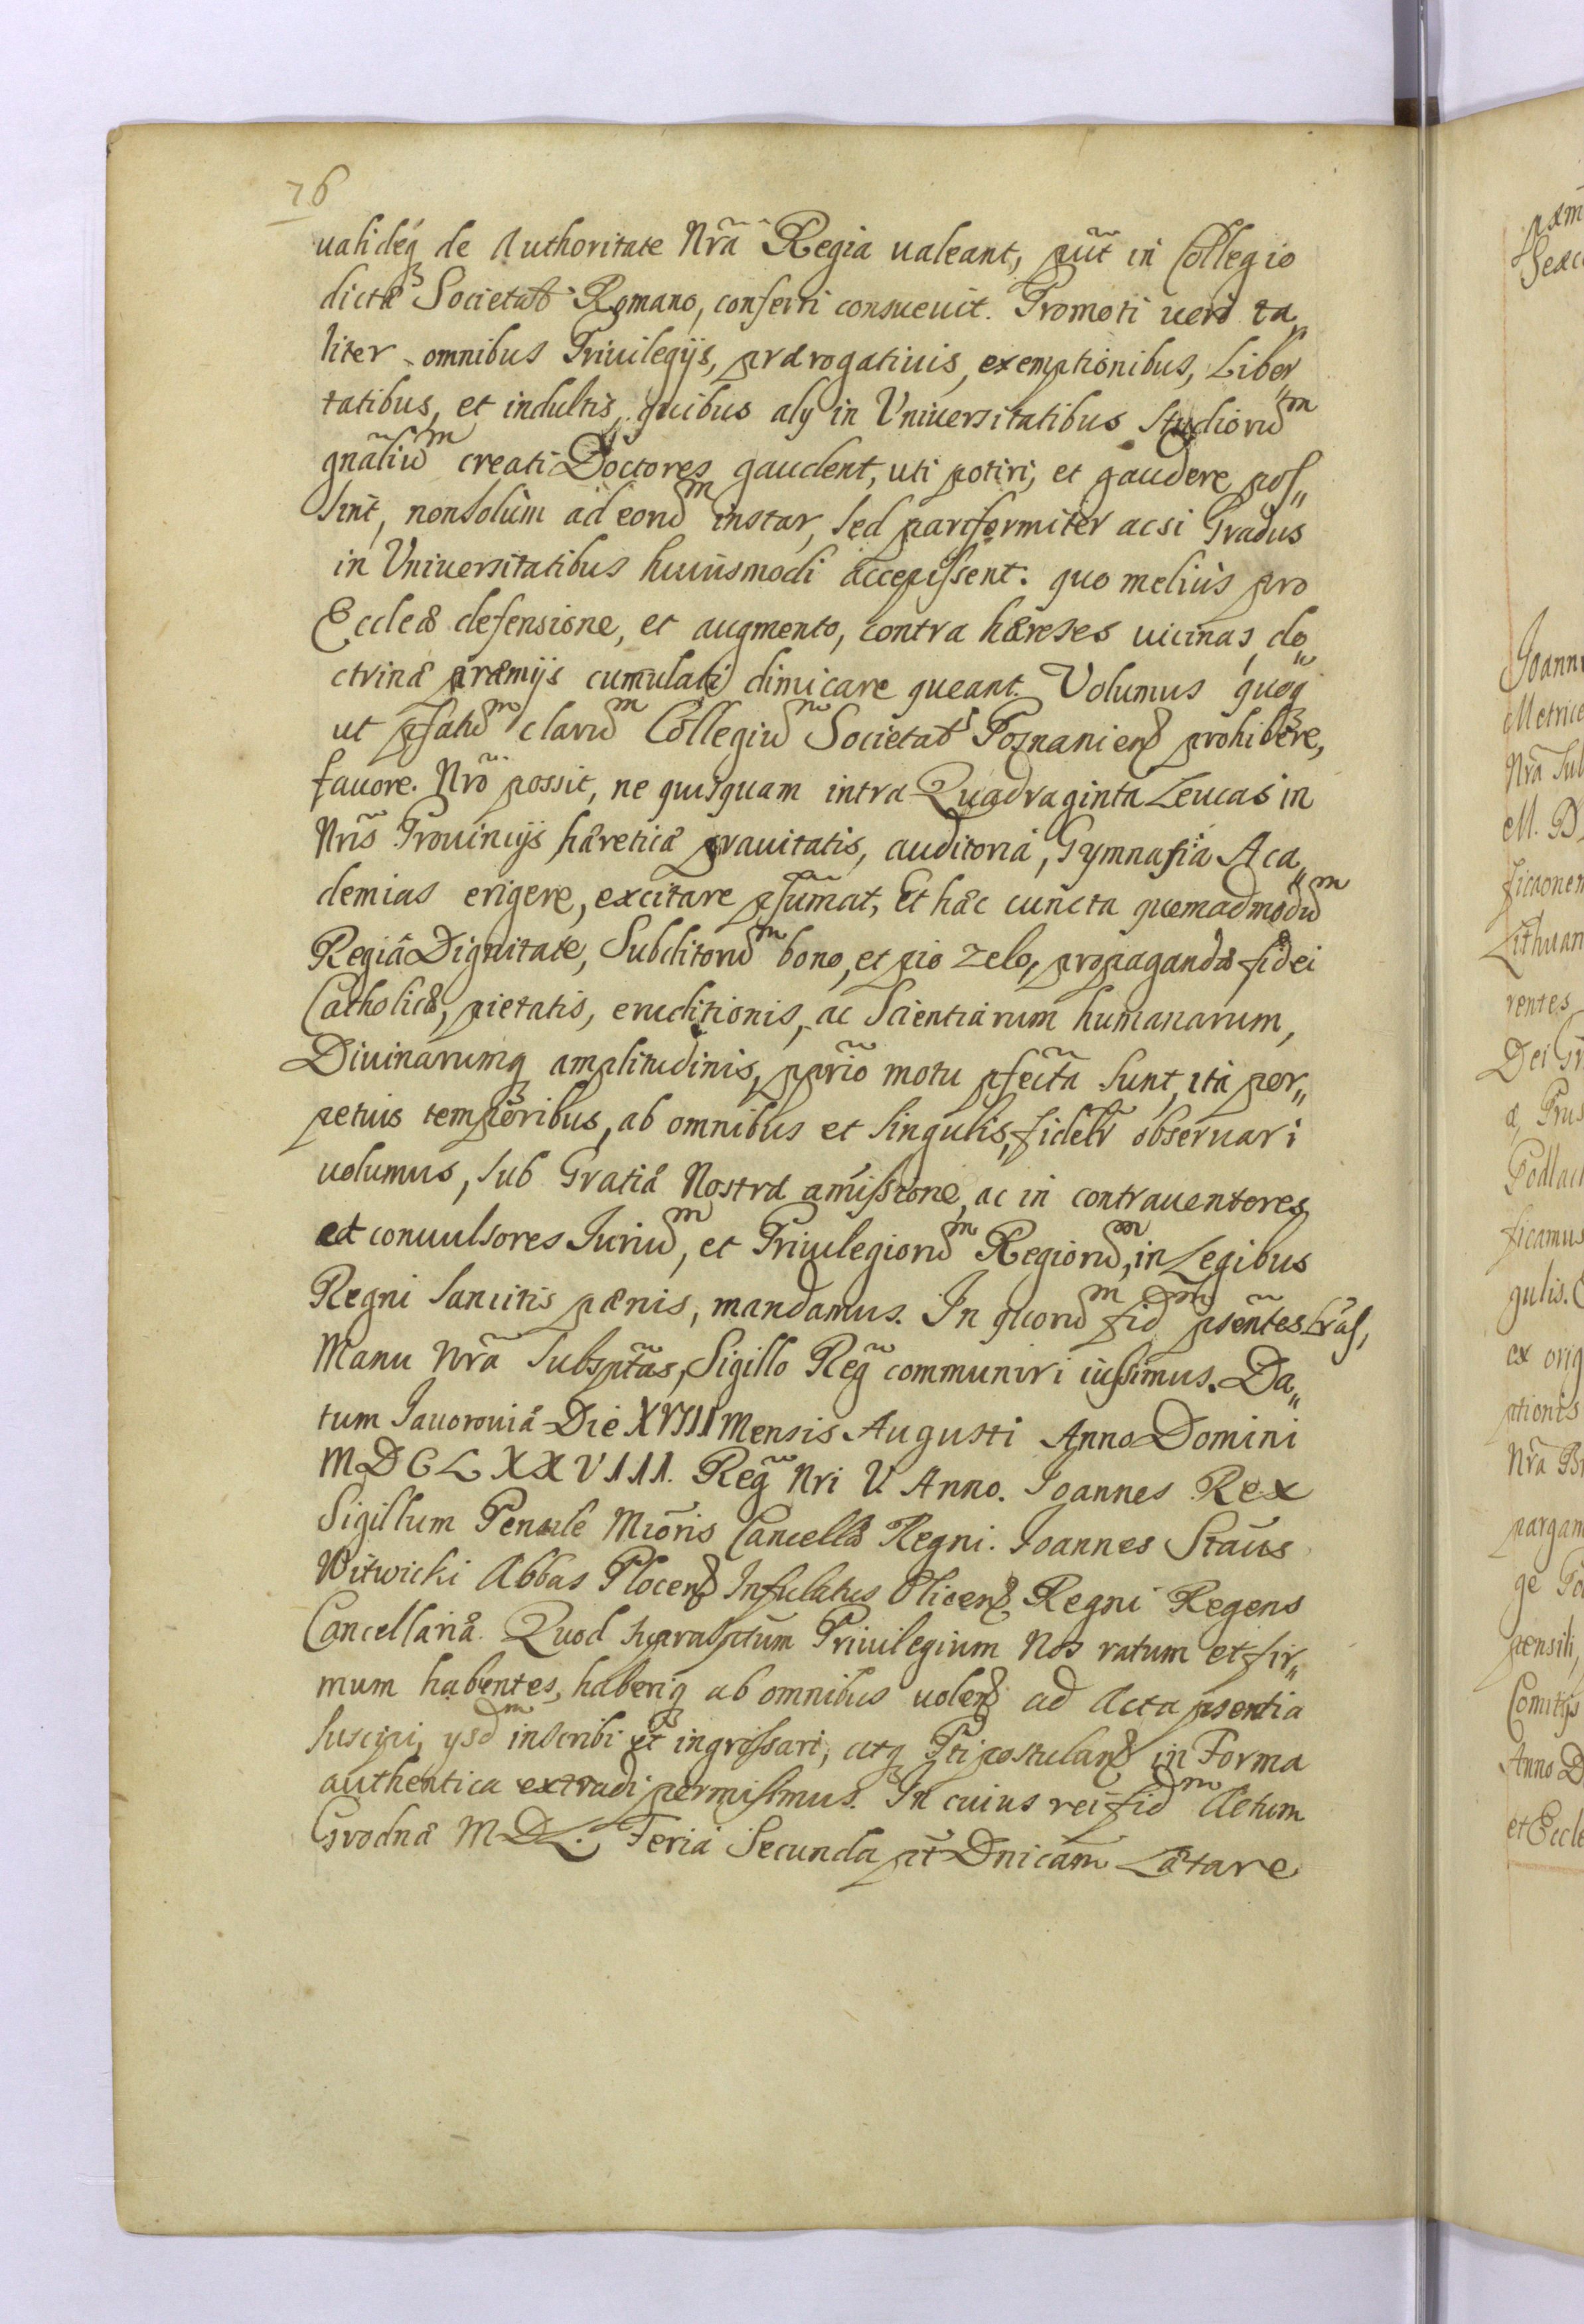 76
ualideq, de Authoritate Nr̃a Regia ualeant, put̃ in Collegio
dictæ Societat̃ Romano, conferri consueuit. Promoti uerò ta„
liter omnibus Priuilegijs, prærogatiuis, exemptionibus, Liber„
tatibus, et indultis, quibus alÿ in Vniuersitatibus Studiorũm
gnãliũm creati Doctores gaudent, uti potiri, et gaudere pos„
sint, non solùm ad eorũm instar, sed pariformiter ac si Gradus
in Vniuersitatibus huiusmodi accepissent. quo melius pro
Eccleæ defensione, et augmento, contra hæreses uicinas, do„
ctrinæ præmijs cumulati dimicare queant. Volumus quoq
ut pfatũm clarũm Collegiũm Societat̃s Posnanien̄ prohibere,
fauore Nrõ possit, ne quisquam intra Quadraginta Leucas in
Nrĩs Prouincijs hæreticæ prauitatis, auditoria, Gymnasia Aca„
demias erigere, excitare psũmat, Et hæc cuncta quemadmodũm
Regiâ Dignitate, Subditorũm bono, et pio zelo, propagandæ fidei
Catholicæ, pietatis, eruditionis, ac Scientiarum humanarum,
Diuinarumq amplitudinis, pprio motu pfecta sunt, ità per„
petuis temporibus, ab omnibus et singulis, fidelr̃ obseruari
uolumus, sub Gratiæ Nostræ amissione, ac in contrauentores
et conuulsores Juriũm, et Priuilegiorũm Regiorũm, in Legibus
Regni sancitis pænis, mandamus. In quorũm fidm psẽntes Lrãs,
Manu Nrã Subsptãs, Sigillo Reg̃ communiri iussimus. Da„
tum Jauorouiæ Die XVIII Mensis Augusti Anno Domini
MDCLXXVIII. Reg̃ Nri V Anno. Joannes Rex
Sigillum Pensile Miõris Cancellæ Regni. Joannes Stãus
Witwicki Abbas Plocen̄ Infulatus Olicen̄ Regni Regens
Cancellariæ. Quod suprasptum Priuilegium Nos ratum et fir„
mum habentes, haberiq ab omnibus uolen̄ ad Acta psentia
suscipi, ijsdm inscribi et ingrossari, atq Pti postulan̄ in Forma
authentica extradi permisimus. In cuius rei fidm Actum
Grodnæ MDL. Feria Secunda pt̃ Dnicam Lætare